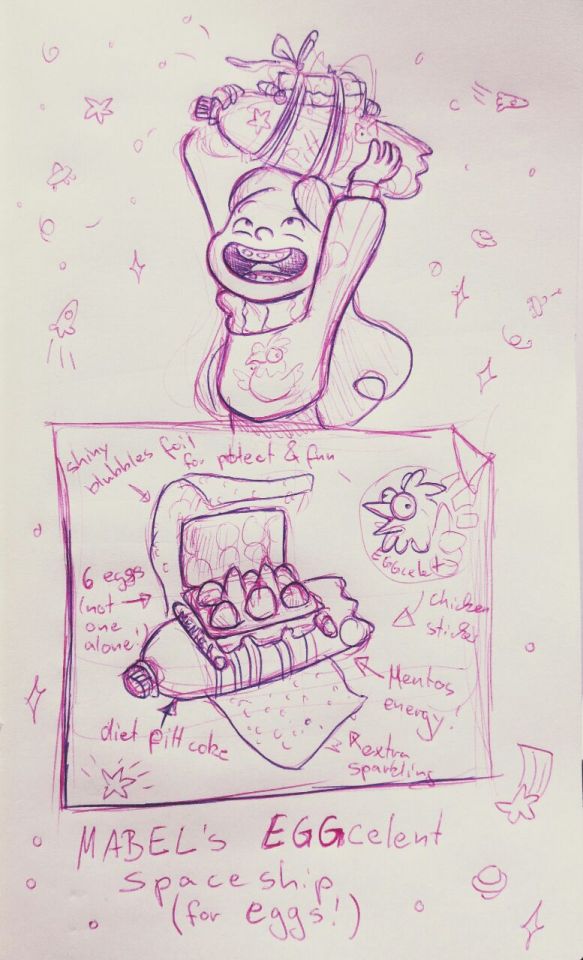 shiny
blubbles foil
for potect & fun
6 eggs
(not
one
alone!)
EGGcelent
chicken
sticker
Mentos
energy!
diet pitt coke
extra
sparkling
MABEL's EGGcelent
spaceship
(for eggs!)